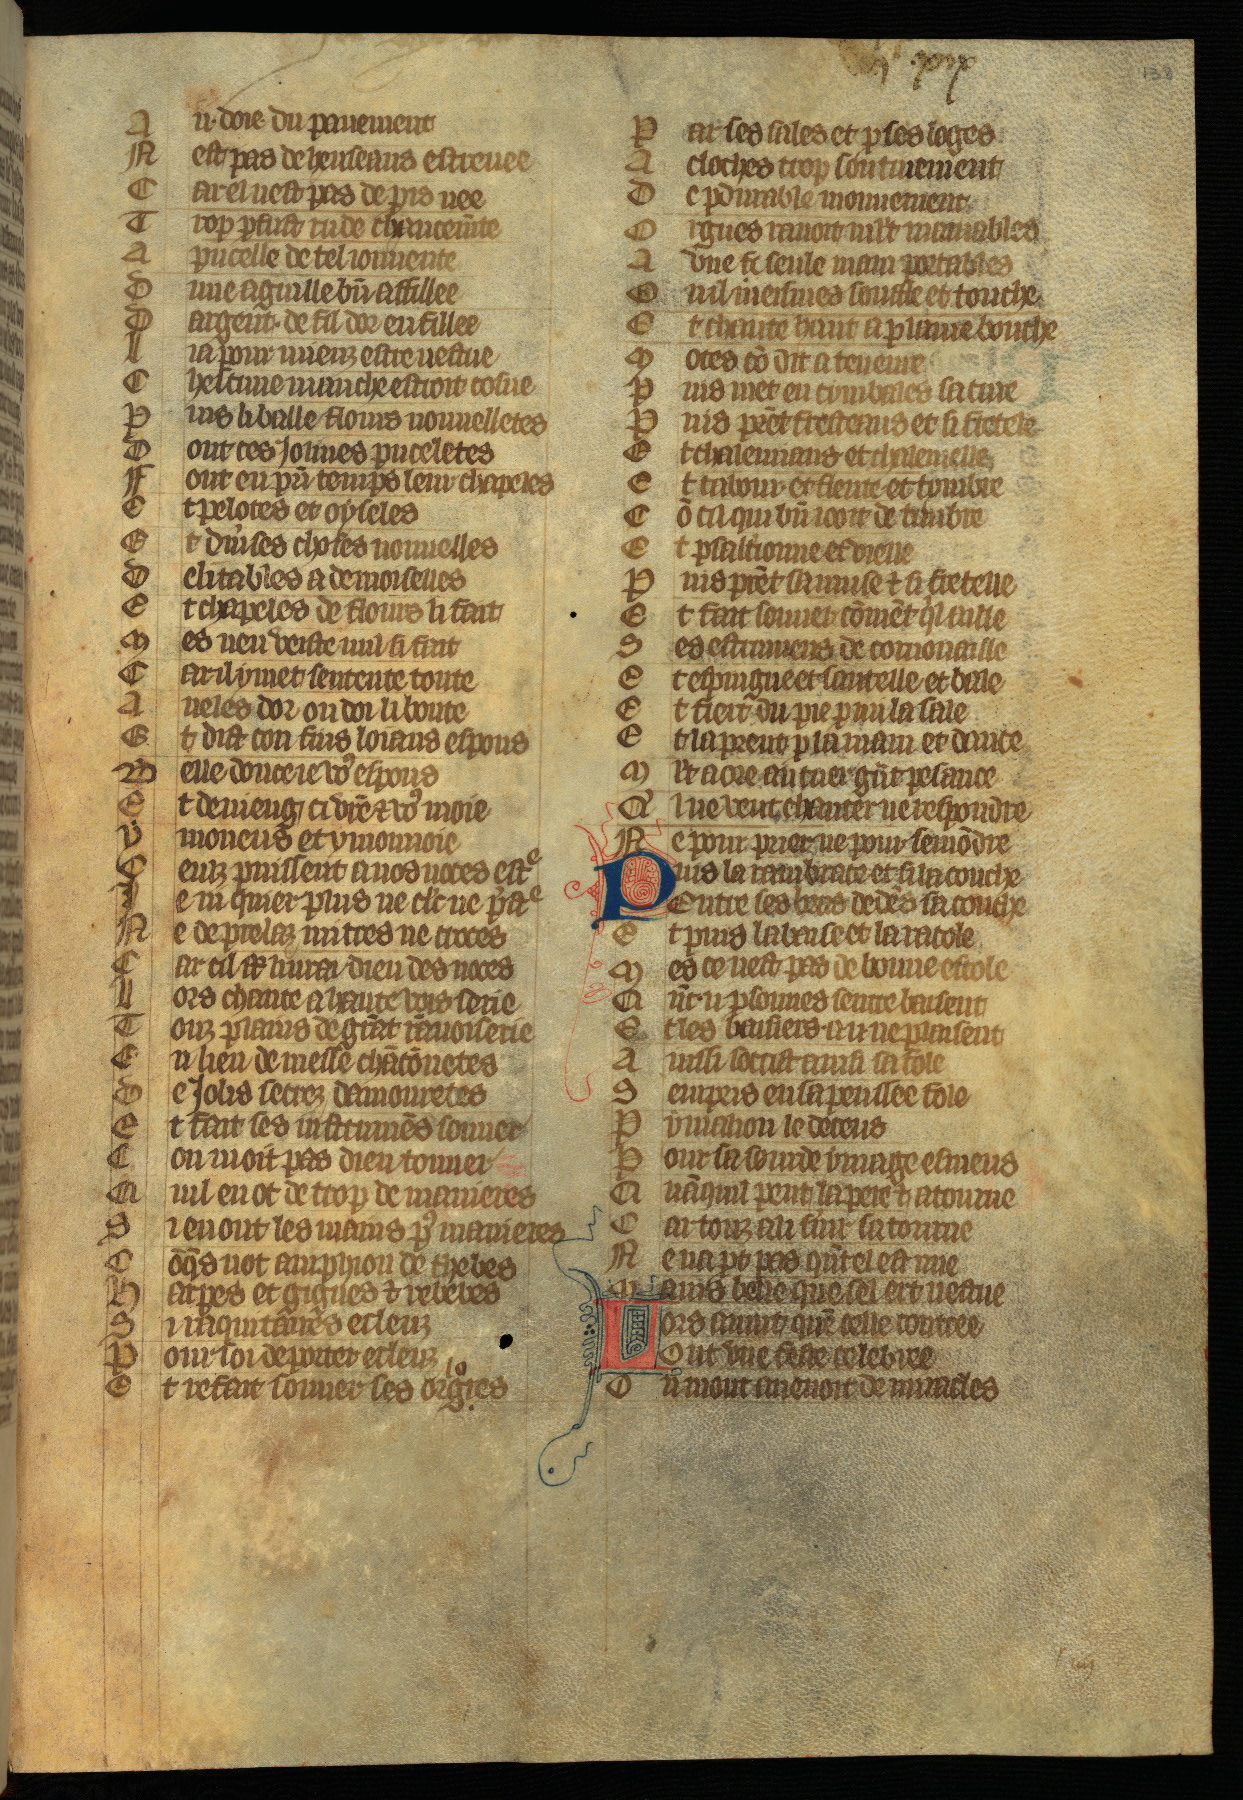 vi.xx.x
138
A .ii. doie du pauement
N est pas de heuseaus estreuee
C ar el nest pas de pis nee
T rop p fust rude chaucem̃te
A pucelle de tel iouuente
D une aguille bn̄ affillee
D argent. de fil dor enfillee
L i a pour mienz estre uestue
C hascune manche estroit cosue
P uis li baille flours nouuelletes
D ont ces Jolines puceletes
F ont en pn̄ temps leur chapeles
E t pelotes et oyseles
E t diũses choses nouuelles
D elitables a demoiselles
E t chapeles de flours li fait
M es nen veiste nul si fait
C ar il y met sentente toute
A neles dor ou doi li boute
E t dist con fins loiaus espous
B elle douce ie vo9 espous
E t deuieng ci vr̃e et vo9 moie
Y moneus et ymonnoie
V euz puissent a nos noces estre
J e ni quier plus ne clerc ne p̃stre
N e de prelaz mitres ne croces
C ar cil est li urai dieu des noces
L ors chante a haute vois serie
T ouz plains de grant renuoiserie
E n lieu de messe chãcõnetes
D e Jolis secrez damouretes
E t fait ses instrumẽs sonner
C on inoit pas dieu tonner
Q uil en ot de trop de manieres
S i en ont les mains p9 manieres
C õq̃s not amphion de thebes
H arpes et gigues et rebebes
S i ra quitarres et leuz
P our soi deporter esleuz
E t refait sonner ses orloges
P ar ses sales et p ses loges
A cloches trop soutiuement
D e pdurable mouuement
O rgues rauoit nilt maniables
A vne seule main portables
O uil meismes souffle et touche
E t chante haut a plaine bouche
M otes cõ dit a teneure
P uis met en cymbales sa cure
P uis prẽt fresteaus et si fretele
E t chalemiaus et chalemelle
E t tabour et fleute et tymbre
C õ cil qui bn̄ iooit de timbre
E t psalterionne et vielle
P uis prẽt sa muse et si fretelle
E t fait sonner cõmẽt quil aille
S es estrumens de cornouaille
E t espingue et sautelle et bale
E t fiert du pie p mi la sale
E t la prent p la main et dance
M lt a ore au cuer grãt pesance
Q l ne veut chanter ne respondre
N e pour prier ne pour semõdre
Puis la rambrace et si la couche
Entre ses bras dedẽs sa couche
E t puis la baise et la racole
M es ce nest pas de bonne escole
Q ñt .ii. psonnes sentre baisent
E t les baisiers a .ii. ne plaisent
A insi soccist ainsi sa fole
S eurpris en sa penssee fole
P ymalion le deceus
P our sa sourde ymage esmeus
Q uãquil peut la pere et atourne
C ar touz a li siir sa tourne
N e na pt pas quãt el est nue
M ains bele que sel ert uestue
Lors auint quẽ celle contree
Out vne feste celebree
O u mout auenoit de miracles